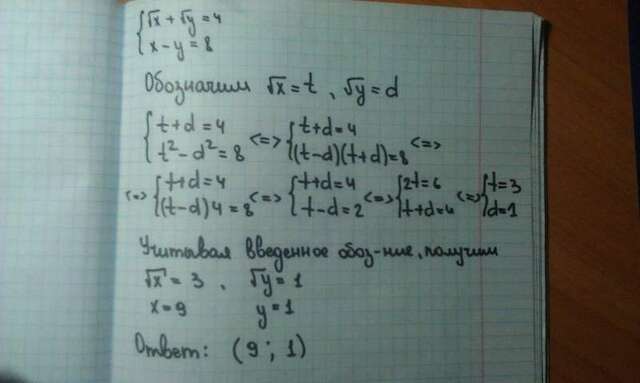 {√x + √y = 4
x - y = 8
Обозначим √x = t, √y = d
{t + d = 4
t² - d² = 8 <=> {t + d = 4
(t - d)(t + d) = 8 <=>
<=> {t + d = 4
(t - d)4 = 8 <=> {t + d = 4
t - d = 2 <=> {2t = 6
t + d = 4 <=> {t = 3
d = 1
Учитывая введенное обоз-ние, получим
√x = 3, √y = 1
x = 9 y = 1
Ответ: (9; 1)